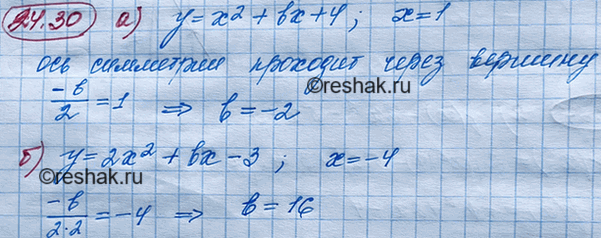 24.30 а) y = x² + bx + 4 ; x = 1
ось симметрии проходит через вершину
-b/2 = 1 ⇒ b = -2
©reshak.ru
б) y = 2x² + bx - 3 ; x = -4
-b/2·2 = -4 ⇒ b = 16